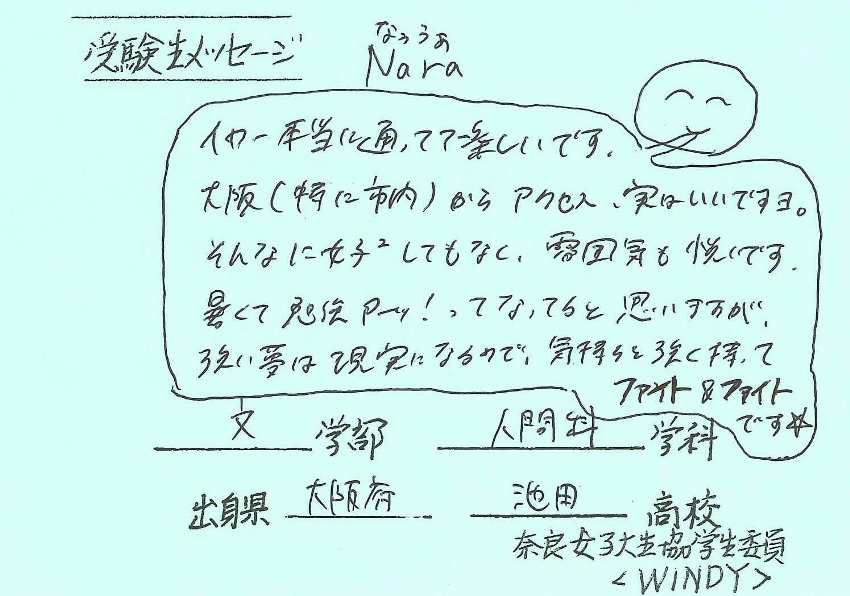 受験生メッセージ
なっらぁ
Nara
イヤー本当に通ってて楽しいです。
大阪(特に市内)からアクセス、実はいいですヨ。
そんなに女子²してもなく、雰囲気も悦いです。
暑くて勉強アーッ!ってなってると思いますが、
強い夢は現実になるので、気持ちを強く持って
ファイト&ファイト
です☆
文 学部 人間科 学科
出身県 大阪府 池田 高校
奈良女子大生協学生委員
<WINDY>